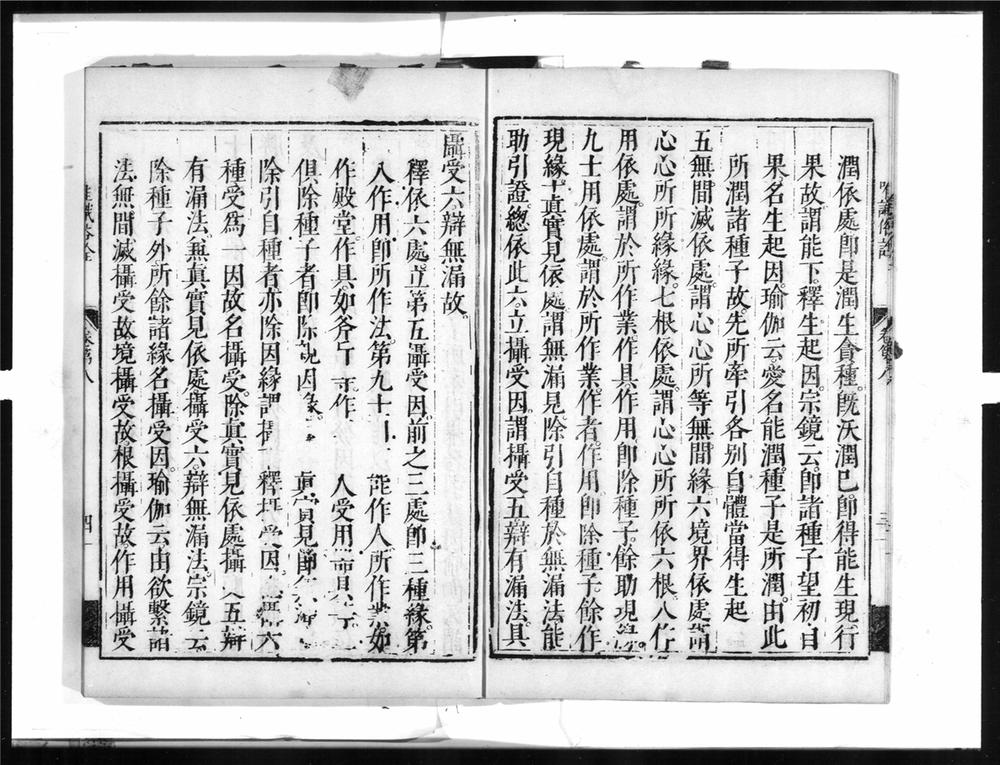 潤依處即是潤生會種。既沃潤已即得能生現行
果故謂能下。釋生起因。宗鏡云。即諸種子望初自
果名生起因。瑜伽云。愛名能潤。種子是所潤。由此
所潤諸種子故。先所牽引各別自體當得生起
五無間滅依處。謂心心所等無間緣六境界依處謂
心心所所緣緣。七根依處。謂心心所所依六根。八作
用依處。謂於所作業作具作用即除種子。餘助現緣。
九士用依處。謂於所作業。作者。作用即除種子。餘作
現緣。十真實見依處。謂無漏見除引自種於無漏法能
助引證。總依此六。立攝受因。謂攝受五辯有漏法。具
攝受六辯無漏故。
釋依六處立第五攝受因。前之三處即三種緣。第
八作用即所作法。第九士 能作人所作業。如
作殿堂。作具。如斧斤 作 人受用
俱除種子者即除 因緣。 真實見
除引自種者亦除因緣 釋攝受因 六
種受為一因故名攝受。除真實見依處攝 五辯
有漏法。兼真實見依處攝受六辯無漏法。宗鏡云
除種子外所餘諸緣名攝受因。瑜伽云由欲繫諸
法無間滅攝受故。境攝受故根攝受故作用攝受
四